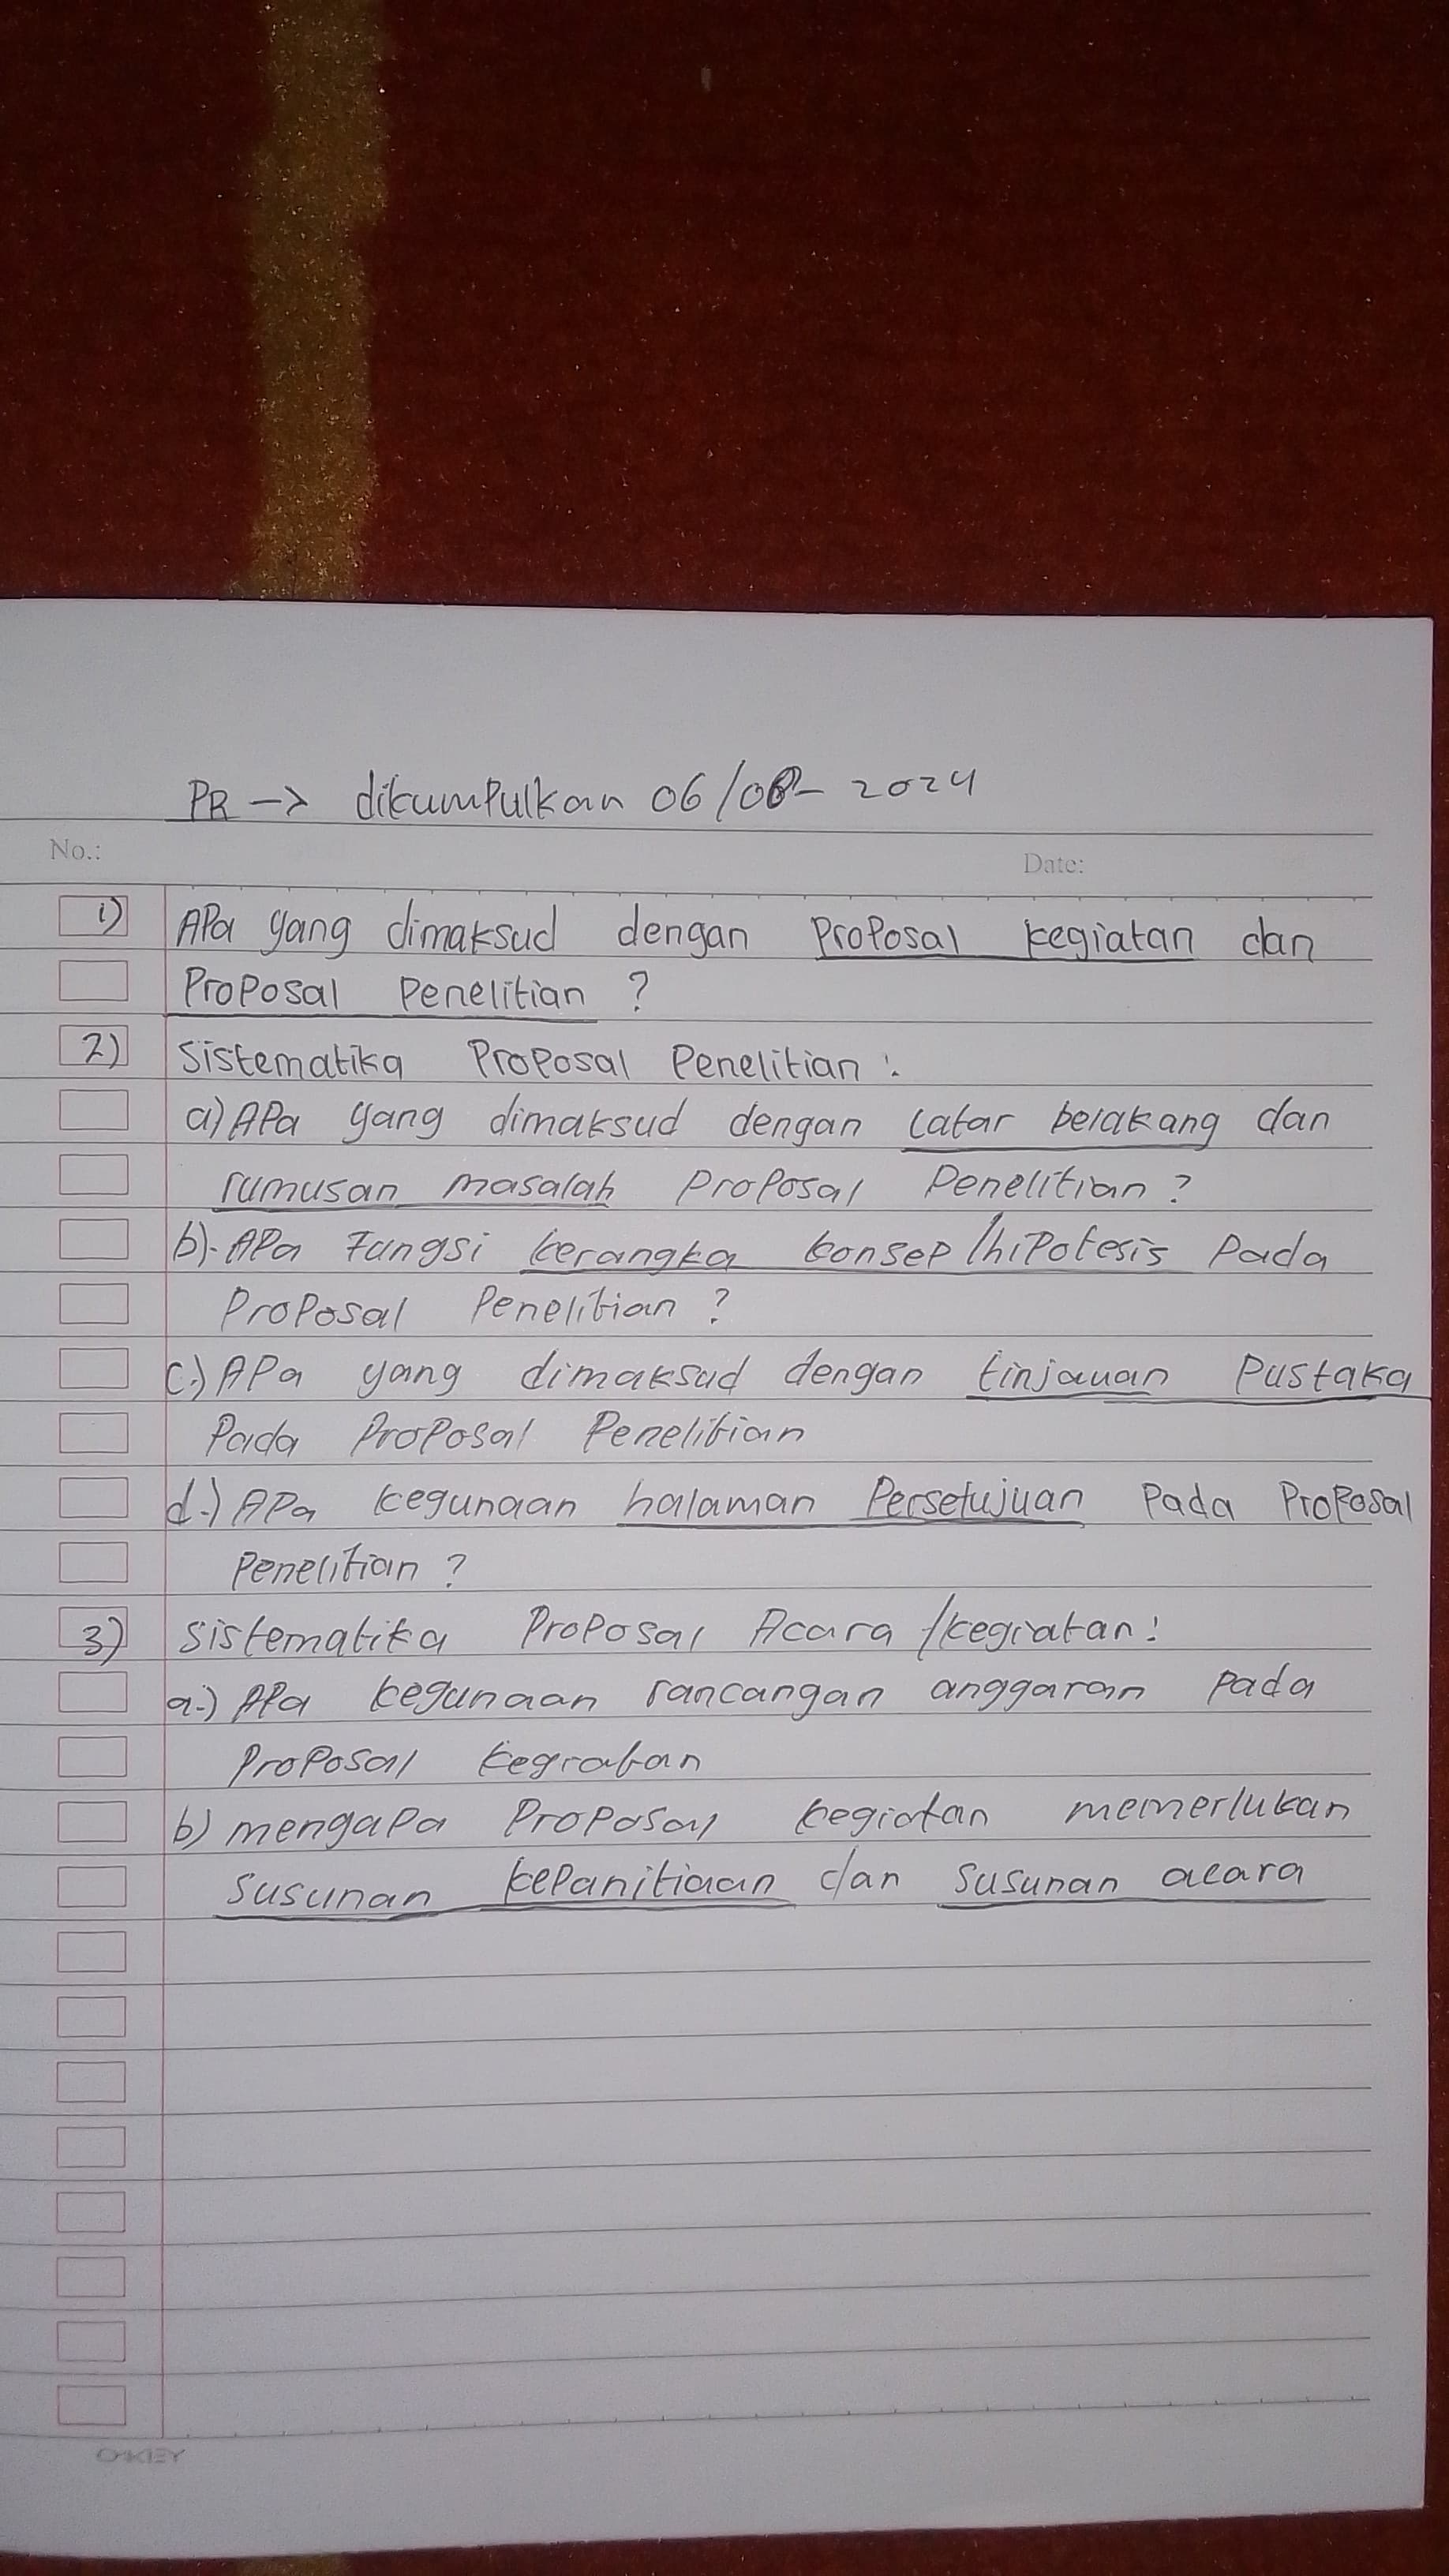 PR -> dikumpulkan 06/08- 2024
No.:
Date:
1) Apa yang dimaksud dengan Proposal kegiatan dan
Proposal Penelitian ?
2) Sistematika Proposal Penelitian :
a) Apa yang dimaksud dengan latar belakang dan
rumusan masalah Proposal Penelitian ?
b). Apa Fungsi kerangka konsep/hipotesis Pada
Proposal Penelitian ?
c.) Apa yang dimaksud dengan tinjauan Pustaka
Pada Proposal Penelitian
d.) Apa kegunaan halaman Persetujuan Pada Proposal
Penelitian ?
3) Sistematika Proposal Acara/kegiatan :
a.) Apa kegunaan rancangan anggaran Pada
Proposal kegiatan
b) mengapa Proposal kegiatan memerlukan
susunan kepanitiaan dan susunan acara
OKEY